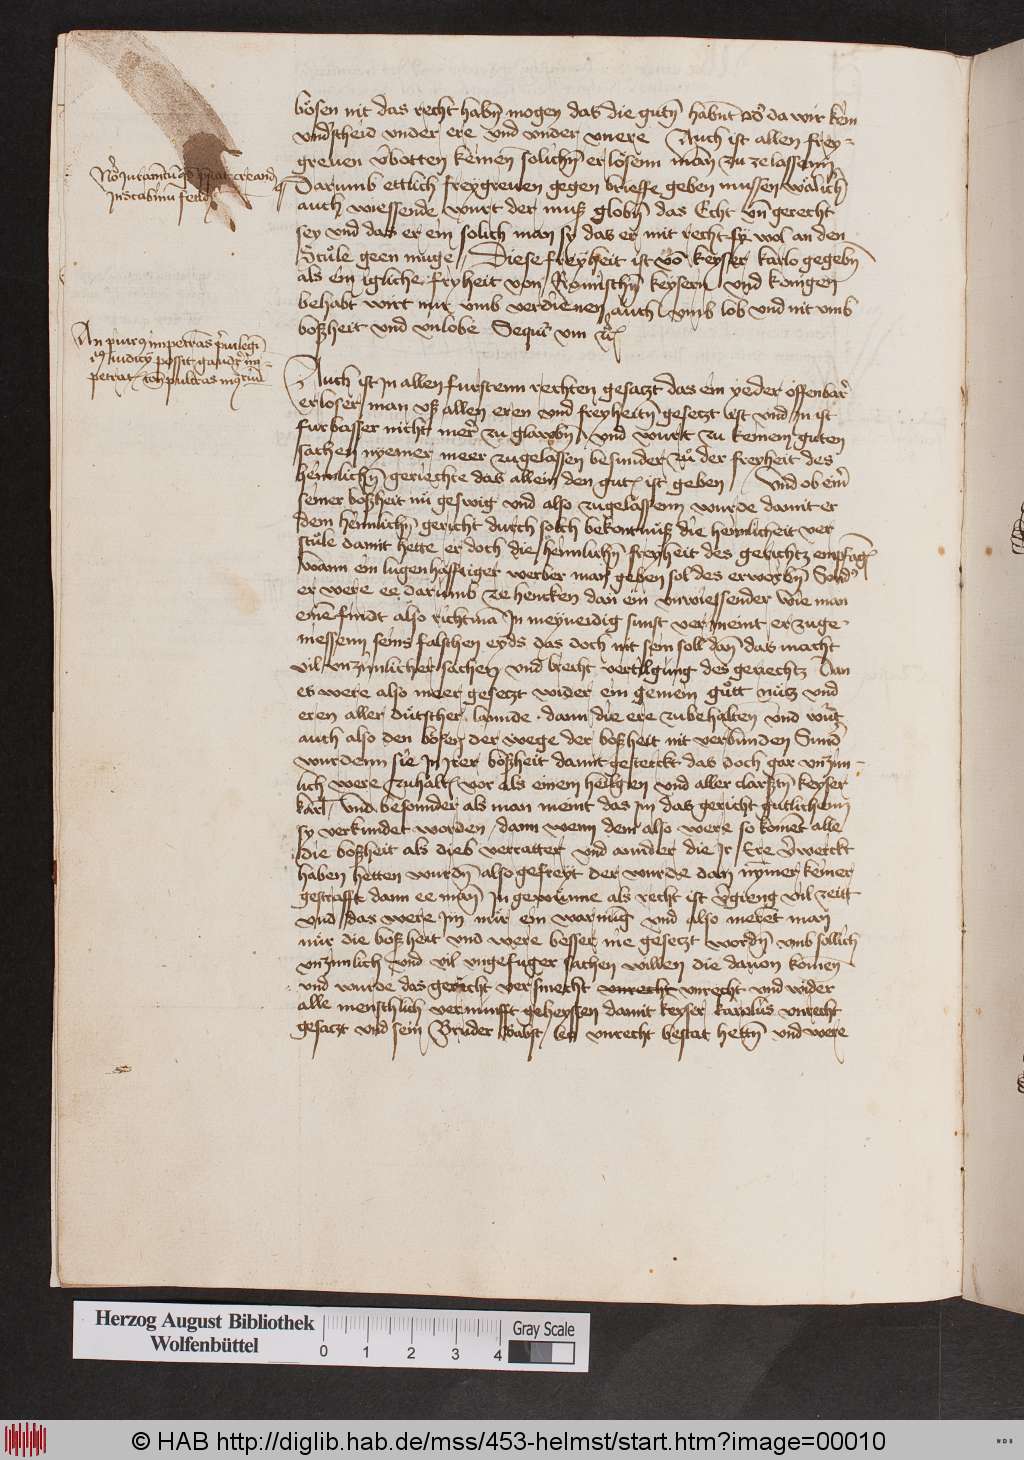 bösen nit das recht habn mogen das die gutn habnt wo da wir kein
vnderscheid vnder ere vnd vnder vnere Auch ist allen frey-
greuen vbotten keinen solichn erlösenn man zu zelassenn
Darumb ettlich freygreuen gegen brieffe geben mussen
auch wiessende wurt der muß globn das Echt vn gerecht
sey vnd das er ein solich man sy das er mit recht sy wol an den
Stule geen muge Diese freyheit ist von keyser karlo gegebn
als ein igliche fryheit von Romischn keysern vnd konigen
behabt wirt nur vmb verdienen auch vmb lob vnd nit vmb
boßheit vnd vnlobe
Auch ist in allen furstenn rechten gesatzt das ein yeder offenbar
erloser man vß allen eren vnd freyheitn gesetzt ist vnd in ist
furbasser nicht mer zu glawbn vnd wurt zu keinem guten
sachen nyemer meer zugelassen besunder zu der freyheit des
heimlichn geriechte das allein den gut ist geben vnd ob eim
seiner boßheit nu geswig vnd also zugelassenn wurde damit er
dem heimlichn gericht durch solch bekentnuß die heimlicheit ver
stule damit hette er doch die heimlichn freyheit des gerichtz
wann ein lugenhafftiger werber man geben sol des erworbn
er were ee darumb ze hencken dan ein vnwiessender wie man
einen findt also richt man In meyneidig sunst vermeint er zuge-
niessenn seins falschen eyds das doch nit sein soll dan das macht
vil vnzimlicher sachen vnd brecht vertilgung des geriechtz Dan
es were also meer gesetzt wider ein gemein gutt nutz vnd
eren aller dutscher lannde dann die ere zubehalten vnd
auch also den bösen der wege der boßheit nit verbunden Sunder
wurdenn sie In irer boßheit damit gesterckt das doch gar vnzim-
lich were zuhalten vor als einem heilgen vnd aller clarstn keyser
karl vnd besonnder als man meint das im das gericht gutlichenn
sy verkundet worden dann wenn dem also were so komet alle
die boßheit als dieb verratter vnd annder die Ir Ere verwerckt
haben hetten wurdn also gefreyt der wurde dan nymer keiner
gestrafft dann ee man In gewunne als recht ist vergieng vil zeitt
vnd das were Im nur ein warnung vnd also meret man
nur die boßheit vnd were besser nie gesetzt wordn vmb sollich
vnzimlich vnd vil vngefuger sachen willen die dauon komen
vnd wurde das gericht versmecht vnrecht vnrecht vnd wider
alle menschlich vernunfft geheyssen damit keyser karolus vnrecht
gesatzt vnd sein Bruder Babst leo vnrecht bestat hettn vnd were
Herzog August Bibliothek
Wolfenbüttel
0 1 2 3 4
Gray Scale
© HAB http://diglib.hab.de/mss/453-helmst/start.htm?image=00010